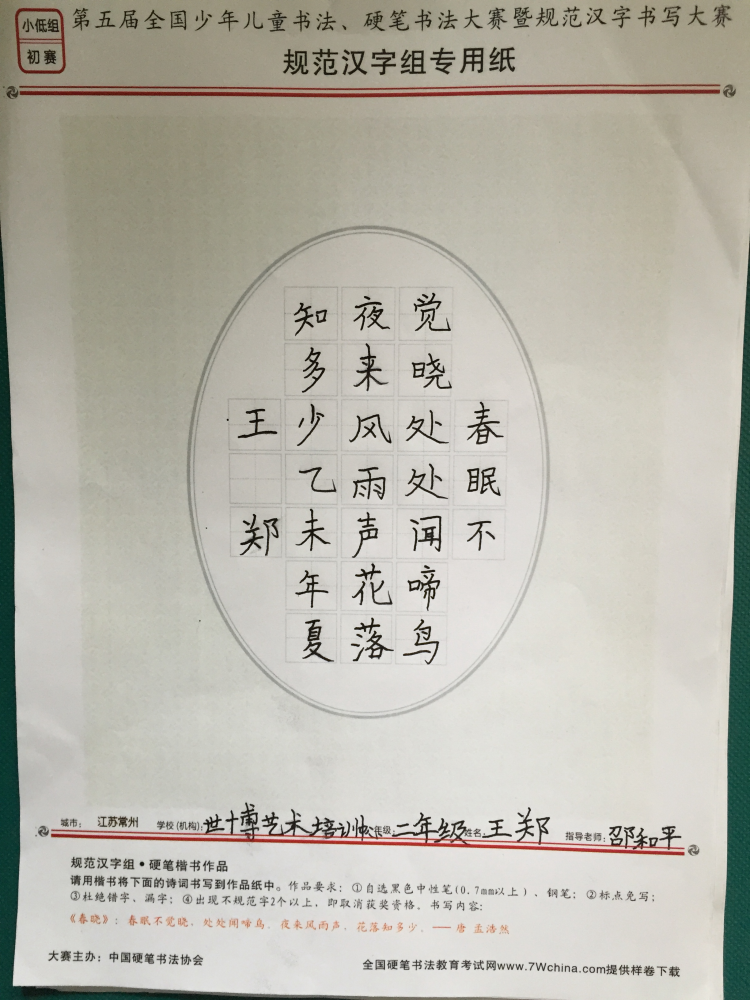 小低组
初赛
第五届全国少年儿童书法、硬笔书法大赛暨规范汉字书写大赛
规范汉字组专用纸
春眠不
觉晓处处闻啼鸟
夜来风雨声花落
知多少乙未年夏
王郑
城市: 江苏常州 学校(机构): 世博艺术培训 年级: 二年级 姓名: 王郑 指导老师: 邵和平
规范汉字组•硬笔楷书作品
请用楷书将下面的诗词书写到作品纸中。作品要求:①自选黑色中性笔(0.7mm以上)、钢笔;②标点免写;
③杜绝错字、漏字;④出现不规范字2个以上,即取消获奖资格。书写内容:
《春晓》:春眠不觉晓,处处闻啼鸟。夜来风雨声,花落知多少。——唐 孟浩然
大赛主办:中国硬笔书法协会
全国硬笔书法教育考试网www.7Wchina.com提供样卷下载